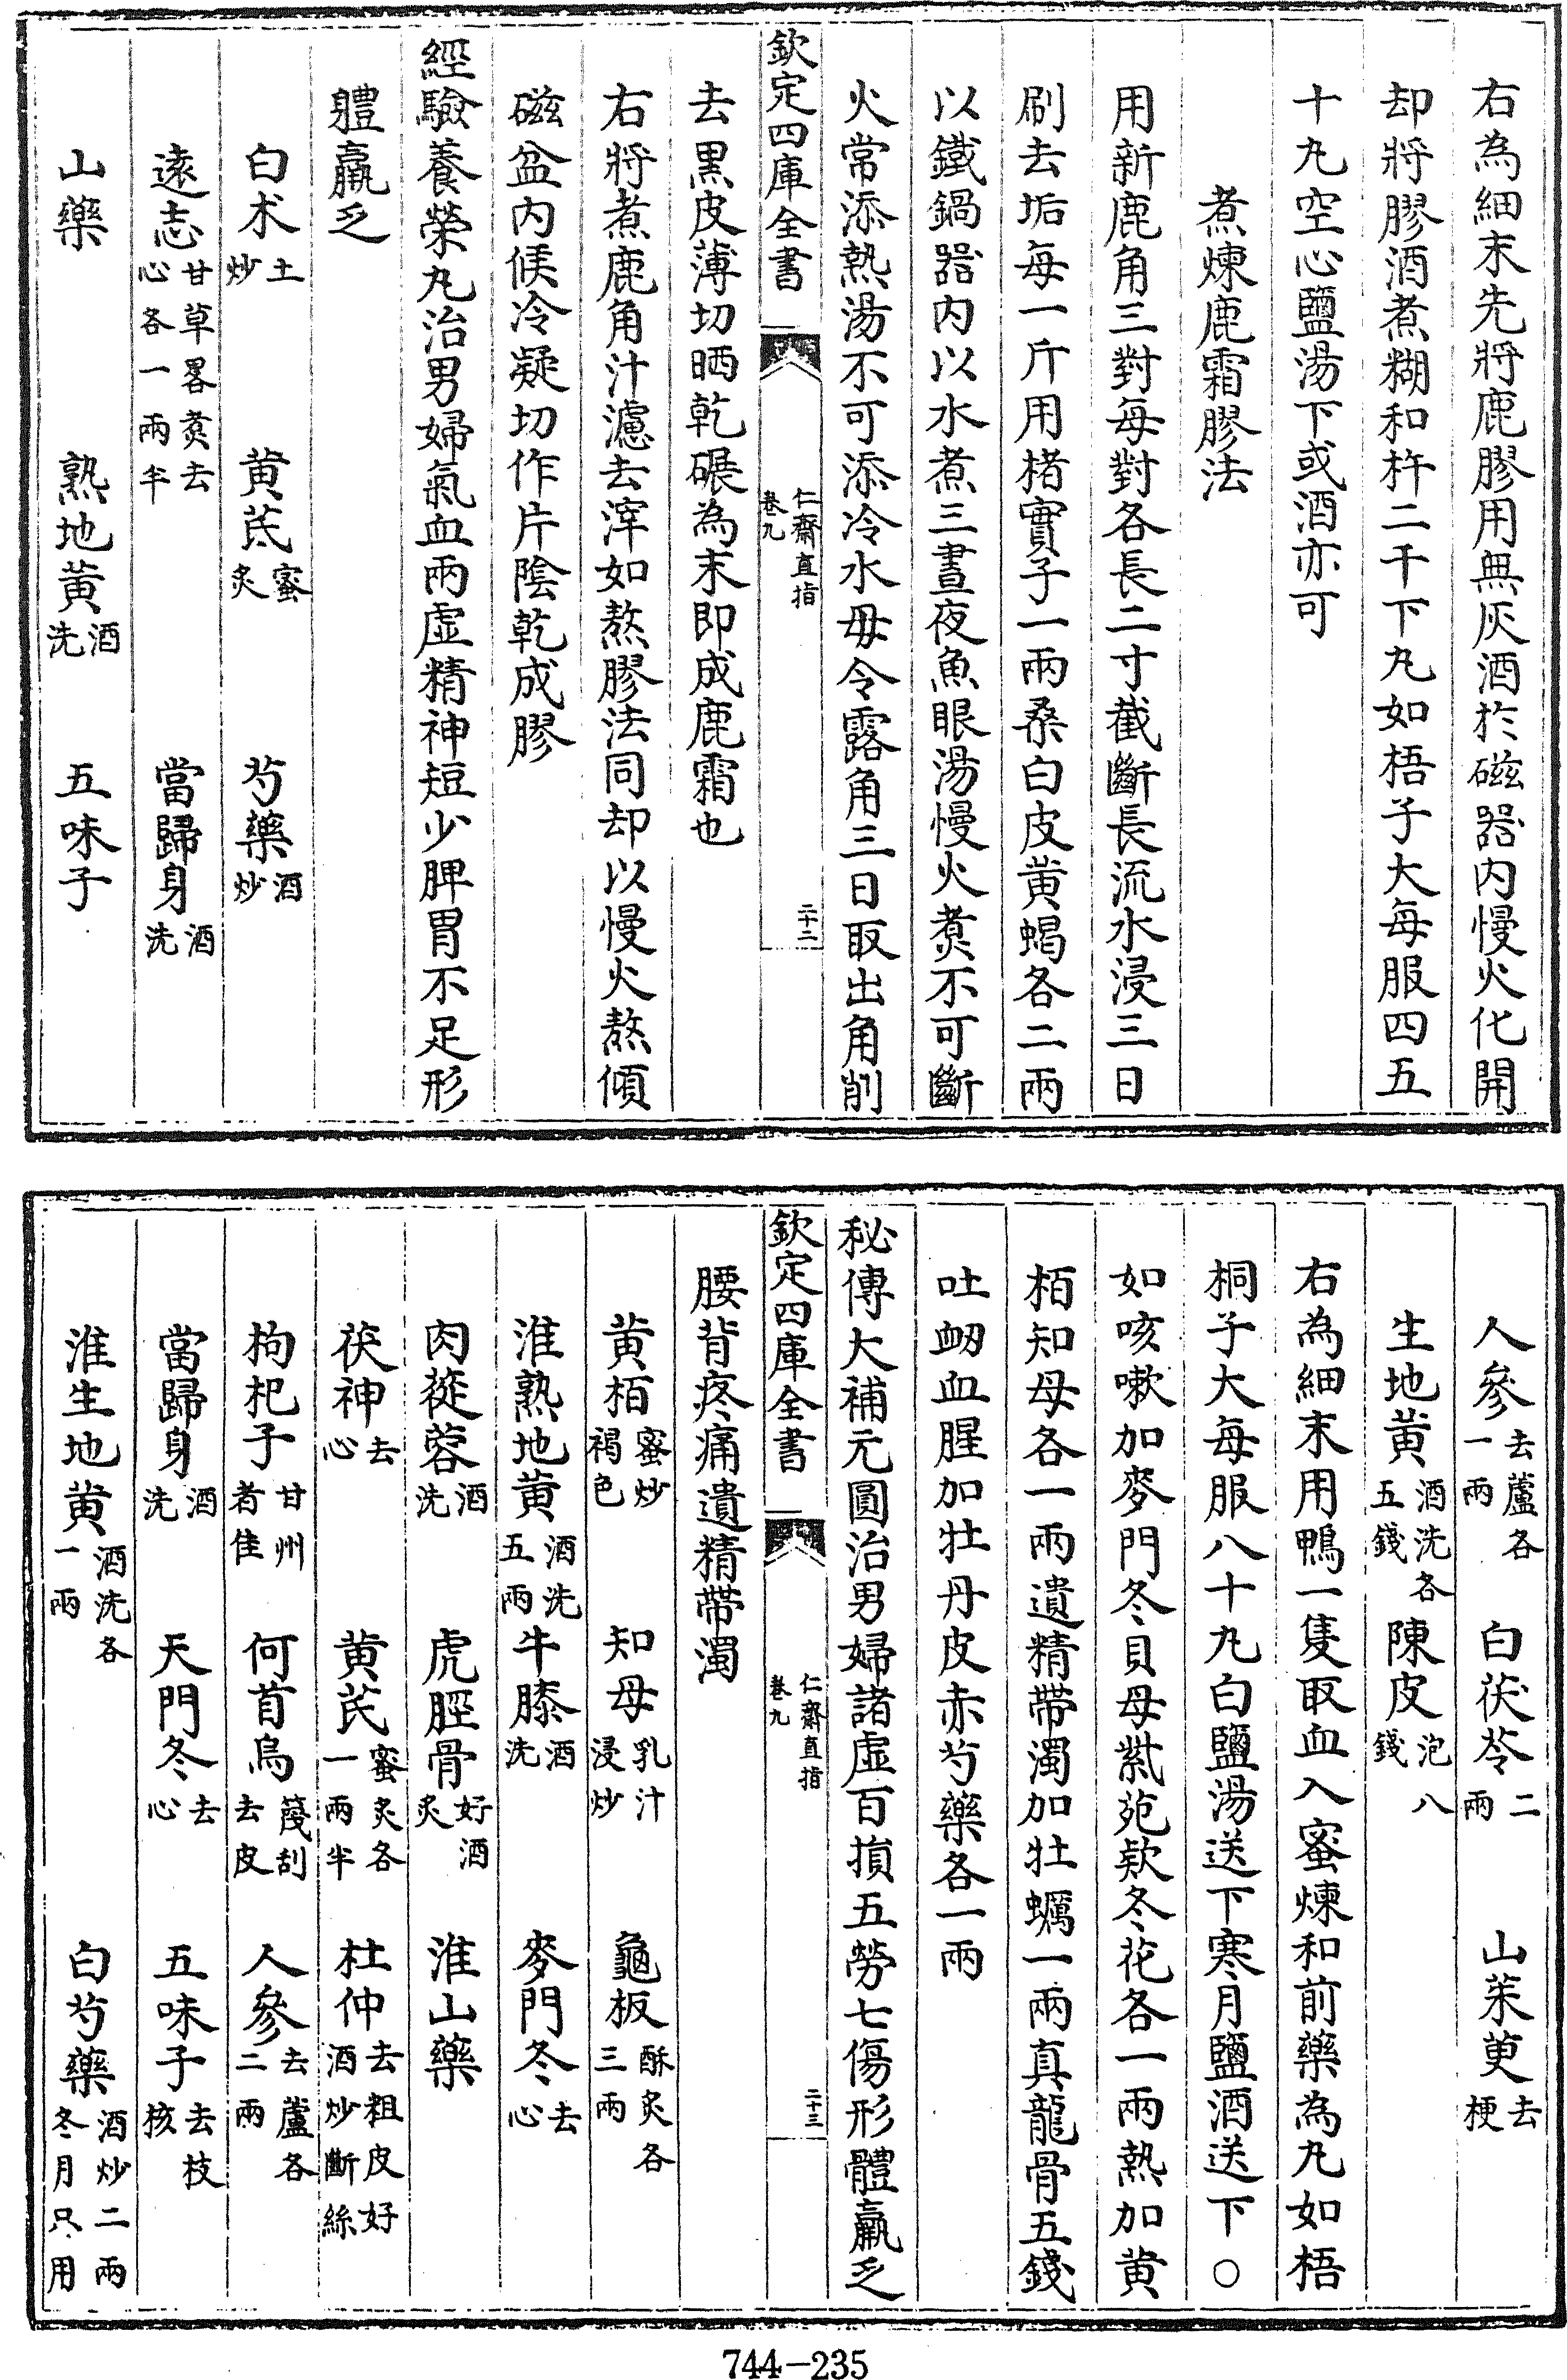 右為細末先將鹿膠用無灰酒於磁器内慢火化開
却將膠酒煮糊和杵二千下丸如梧子大每服四五
十丸空心鹽湯下或酒亦可
煮煉鹿霜膠法
用新鹿角三對每對各長二寸截斷長流水浸三日
刷去垢每一斤用楮實子一兩桑白皮黄蝎各二兩
以鐵鍋器内以水煮三晝夜魚眼湯慢火煑不可斷
火常添熱湯不可添冷水毋令露角三日取出角削
欽定四庫全書
仁齋直指
卷九
二十二
去黒皮薄切晒乾碾為末即成鹿霜也
右將煮鹿角汁濾去滓如熬膠法同却以慢火熬傾
磁盆内候冷凝切作片陰乾成膠
經驗養榮丸治男婦氣血兩虛精神短少脾胃不足形
體羸乏
白术土炒 黄芪蜜炙 芍藥酒炒
遠志甘草畧煑去心各一兩半 當歸身酒洗
山藥 熟地黄酒洗 五味子
人參去蘆各一兩 白茯苓二兩 山茱萸去梗
生地黄酒洗各五錢 陳皮泡八錢
右為細末用鴨一隻取血入蜜煉和前藥為丸如梧
桐子大每服八十丸白鹽湯送下寒月鹽酒送下○
如咳嗽加麥門冬貝母紫菀欵冬花各一兩熱加黄
栢知母各一兩遺精帶濁加牡蠣一兩真龍骨五錢
吐衂血腥加牡丹皮赤芍藥各一兩
秘傳大補元圓治男婦諸虛百損五勞七傷形體羸乏
欽定四庫全書
仁齋直指
卷九
二十三
腰背疼痛遺精帶濁
黄栢蜜炒褐色 知母乳汁浸炒 龜板酥炙各三兩
淮熟地黄酒洗五兩 牛膝酒洗 麥門冬去心
肉蓯蓉酒洗 虎脛骨好酒炙 淮山藥
茯神去心 黄芪蜜炙各一兩半 杜仲去粗皮好酒炒斷絲
枸杞子甘州者佳 何首烏篾刮去皮 人參去蘆各二兩
當歸身酒洗 天門冬去心 五味子去枝核
淮生地黄酒洗各一兩 白芍藥酒炒二兩冬月只用
744-235